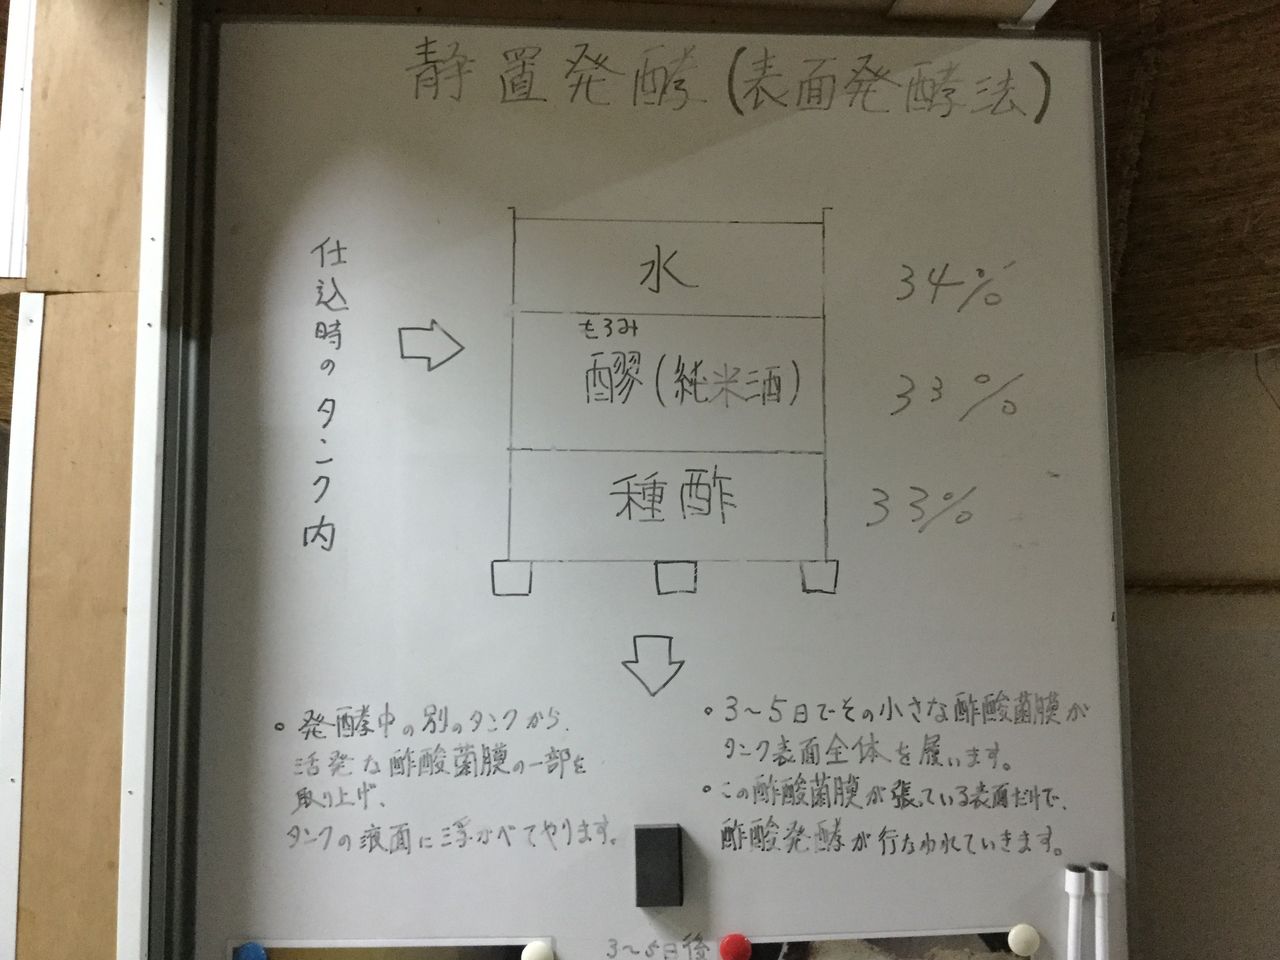 静置発酵(表面発酵法)
仕込時のタンク内
水
34%
もろみ
醪(純米酒)
33%
種酢
33%
• 発酵中の別のタンクから、
活発な酢酸菌膜の一部を
取り上げ、
タンクの液面に浮かべてやります。
• 3〜5日でその小さな酢酸菌膜が
タンク表面全体を履います。
• この酢酸菌膜が張っている表面だけで、
酢酸発酵が行なわれていきます。
3〜5日後